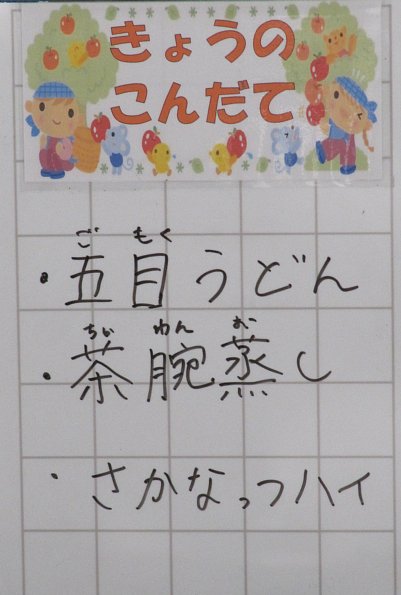 きょうの
こんだて
ごもく
・五目うどん
ちゃわんむ
・茶腕蒸し
・さかなっつハイ